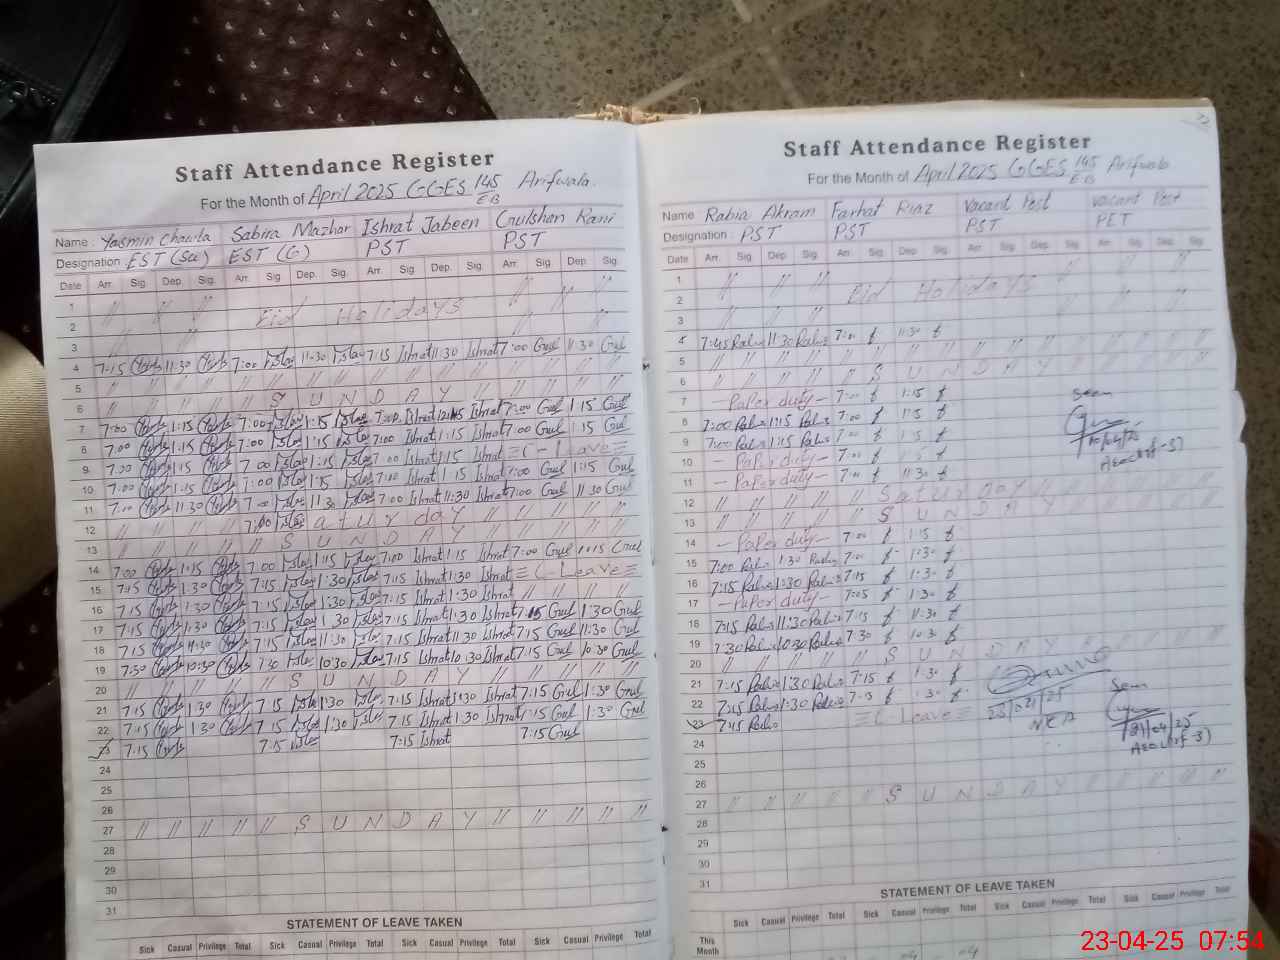 Staff Attendance Register
For the Month of April 2025 GGES 145/EB Arifwala.
Name : Yasmin Chawla Sabira Mazhar Ishrat Jabeen Gulshan Rani
Designation : EST (Sci) EST (G) PST PST
Date Arr. Sig. Dep. Sig. Arr. Sig. Dep. Sig. Arr. Sig. Dep. Sig. Arr. Sig. Dep. Sig.
1 // // // // //
2 Eid Holidays
3 // // //
4 7:15 11:30 7:00 11:30 7:15 Ishrat 11:30 Ishrat 7:00 Gul 11:30 Gul
5 // // // // // // // //
6 // // S U N D A Y // //
7 7:00 1:15 7:00 1:15 7:00 Ishrat Ishrat 7:00 Gul 1:15 Gul
8 7:00 1:15 7:00 1:15 7:00 Ishrat 1:15 Ishrat 7:00 Gul 1:15 Gul
9 7:00 1:15 7:00 1:15 7:00 Ishrat 1:15 Ishrat C-Leave
10 7:00 1:15 7:00 1:15 7:00 Ishrat 1:15 Ishrat 7:00 Gul 1:15 Gul
11 7:00 11:30 7:00 11:30 7:00 Ishrat 11:30 Ishrat 7:00 Gul 11:30 Gul
12 // // // // a t u r d a y // // //
13 // // S U N D A Y // // //
14 7:00 1:15 7:00 1:15 7:00 Ishrat 1:15 Ishrat 7:00 Gul 1:15 Gul
15 7:15 1:30 7:15 1:30 7:15 Ishrat 1:30 Ishrat C-Leave
16 7:15 1:30 7:15 1:30 7:15 Ishrat 1:30 Ishrat // // // //
17 7:15 1:30 7:15 1:30 7:15 Ishrat 1:30 Ishrat 7:15 Gul 1:30 Gul
18 7:15 11:30 7:15 11:30 7:15 Ishrat 11:30 Ishrat 7:15 Gul 11:30 Gul
19 7:30 10:30 7:30 10:30 7:15 Ishrat 10:30 Ishrat 7:15 Gul 10:30 Gul
20 // // // // S U N D A Y // // //
21 7:15 1:30 7:15 1:30 7:15 Ishrat 1:30 Ishrat 7:15 Gul 1:30 Gul
22 7:15 1:30 7:15 1:30 7:15 Ishrat 1:30 Ishrat 7:15 Gul 1:30 Gul
23 7:15 7:15 7:15 Ishrat 7:15 Gul
24
25
26
27 // // // // // S U N D A Y // // // //
28
29
30
31
STATEMENT OF LEAVE TAKEN
Sick Casual Privilege Total Sick Casual Privilege Total Sick Casual Privilege Total Sick Casual Privilege Total
Staff Attendance Register
For the Month of April 2025 GGES 145/EB Arifwala
Name : Rabia Akram Farhat Riaz Vacant Post Vacant Post
Designation : PST PST PST PET
Date Arr. Sig. Dep. Sig. Arr. Sig. Dep. Sig. Arr. Sig. Dep. Sig. Arr. Sig. Dep. Sig.
1 // // //
2 Eid Holidays
3 // // //
4 7:45 11:30 7:00 11:30
5 // // // // // // // //
6 // // // // S U N D A Y // //
7 - Paper duty - 7:00 1:15
8 7:00 1:15 7:00 1:15
9 7:00 1:15 7:00 1:15
10 - Paper duty - 7:00 1:15
11 - Paper duty - 7:00 11:30
12 // // // // // Saturday // //
13 // // // // // S U N D A Y // //
14 - Paper duty - 7:00 1:15
15 7:00 1:30 7:00 1:30
16 7:15 1:30 7:15 1:30
17 - Paper duty - 7:05 1:30
18 7:15 11:30 7:15 11:30
19 7:30 10:30 7:30 10:30
20 // // // // // S U N D A Y // //
21 7:15 1:30 7:15 1:30
22 7:45 1:30 7:15 1:30
23 7:45 C Leave
24
25
26
27 // // // // // S U N D A Y // // // //
28
29
30
31
Seen
10/04/25
Seen
21/04/25
STATEMENT OF LEAVE TAKEN
Sick Casual Privilege Total Sick Casual Privilege Total Sick Casual Privilege Total Sick Casual Privilege Total
This Month
23-04-25 07:54